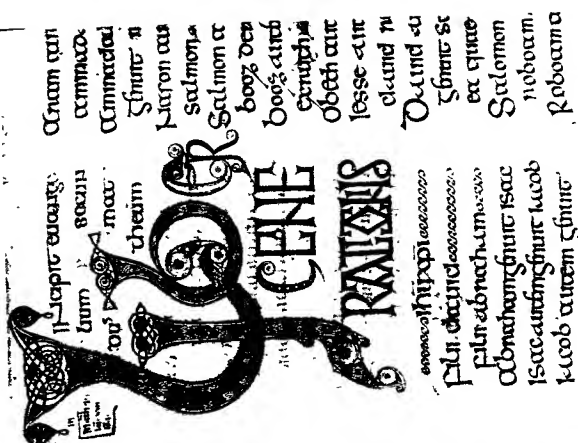 Incipit euange
lium secun
mat
theum
LIBER
GENE
RATIONIS
ihu xpi
filii dauid
filii abraham
Abraham genuit isac
Isac autem genuit iacob
Iacob autem genuit
Aram aut
amminada
Amminadau
Genuit n
Nason au
salmon
Salmon a
booz de
booz aute
obeth aute
Iesse aut
dauid
Dauid au
Genuit s
Salomon
roboam
Roboam a